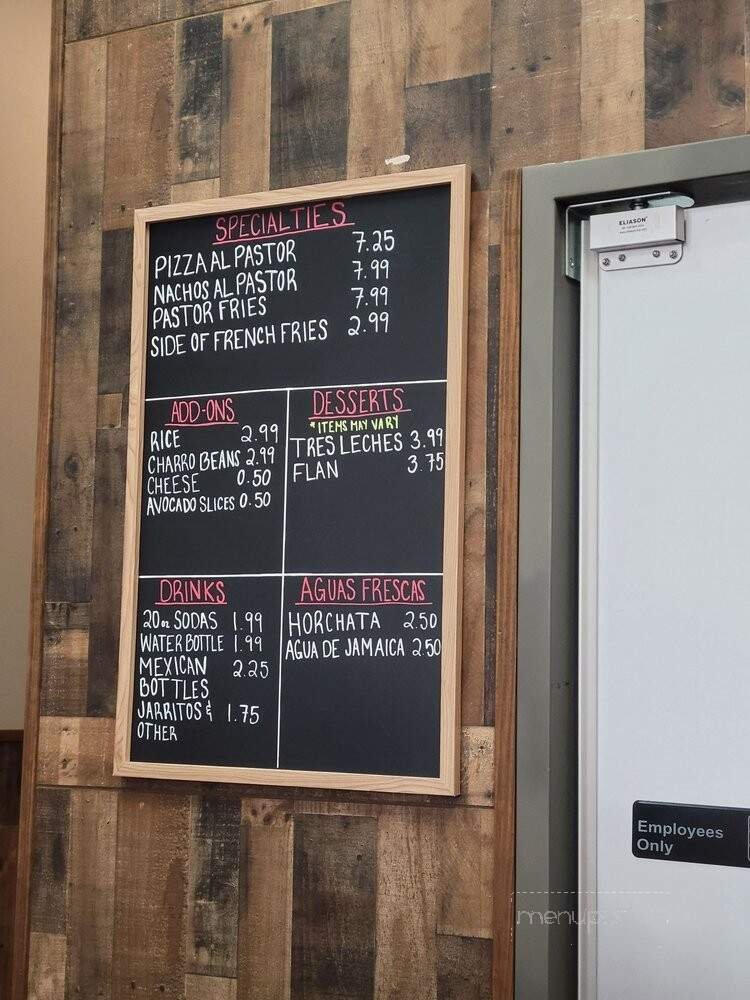 SPECIALTIES
PIZZA AL PASTOR 7.25
NACHOS AL PASTOR 7.99
PASTOR FRIES 7.99
SIDE OF FRENCH FRIES 2.99
ADD-ONS
RICE 2.99
CHARRO BEANS 2.99
CHEESE 0.50
AVOCADO SLICES 0.50
DESSERTS
*ITEMS MAY VARY
TRES LECHES 3.99
FLAN 3.75
DRINKS
20oz SODAS 1.99
WATER BOTTLE 1.99
MEXICAN 2.25
BOTTLES
JARRITOS & 1.75
OTHER
AGUAS FRESCAS
HORCHATA 2.50
AGUA DE JAMAICA 2.50
ELIASON
Employees
Only